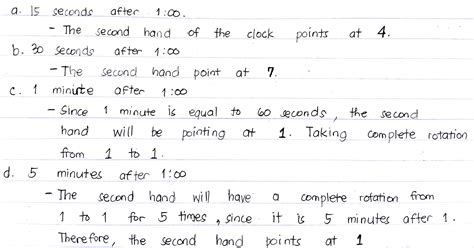 a. 15 seconds after 1:00.
- The second hand of the clock points at 4.
b. 30 seconds after 1:00
- The second hand point at 7.
c. 1 minute after 1:00
- Since 1 minute is equal to 60 seconds, the second
hand will be pointing at 1. Taking complete rotation
from 1 to 1.
d. 5 minutes after 1:00
- The second hand will have a complete rotation from
1 to 1 for 5 times, since it is 5 minutes after 1.
Therefore, the second hand points at 1